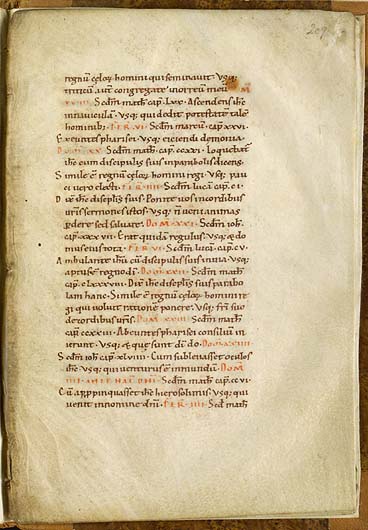 209
regnũ cęlor̃ homini qui seminauit · usq;
triticũ aut̃ congregate in orreũ meũ · DOM̃
XVIIII · Scdm̃ math̃ cap̃ · LXX · Ascendens ihc̃
in nauicula · usq; qui dedit potestatẽ tale
hominib; · FER · VI · Scdm̃ marcũ · cap̃ XXVI ·
Exeuntes pharisei · usq; eiciendi demonia ·
DOM̃ XX · Scdm̃ math̃ · cap̃ · CCXXI · Loquebat̃
ihc̃ cum discipulis suis in parabolis dicens ·
Simile ẽ regnũ cęlor̃ homini regi · usq; pau
ci uero electi · FER · IIII · Scdm̃ lucã cap̃ · CI ·
Dix̃ ihc̃ disciplis suis · Ponite uos in cordibus
uiris sermones istos · usq; ñ ueni animas
perdere sed saluare · DOM̃ XXI · Scdm̃ ioh̃
cap̃ XXXVII · Erat quidã regulus · usq; & do
mus eius tota · FER · VI · Scdm̃ lucã · cap̃ · C · V ·
Ambulante ihũ cũ discipulis suis in uia · usq;
aptus ẽ regno dĩ · DOM̃ XXII · Scdm̃ math̃
cap̃ CLXXXVIII · Dix̃ ihc̃ disciplis suis parabo
lam hanc · Simile ẽ regnũ cęlor̃ homini re
gi qui uoluit rationẽ ponere · usq; fr̃i suo
de cordibus uris · DOM̃ XXIII · Scdm̃ math̃
cap̃ CCXXIII · Abeuntes pharisei consiliũ in
ierunt · usq; & que sunt dĩ do · DOM̃ XXIIII
Scdm̃ ioh̃ cap̃ XLVIII · Cum subleuasset oculos
ihc̃ · usq; qui uenturus ẽ in mundũ · DOM̃
IIII · ANTE NAT̃ DNI · Scdm̃ math̃ cap̃ · CCVI ·
Cũ appropinquasset ihc̃ hierosolimis · usq; qui
uenit in nomine dnĩ · FER · IIII · Scd math̃